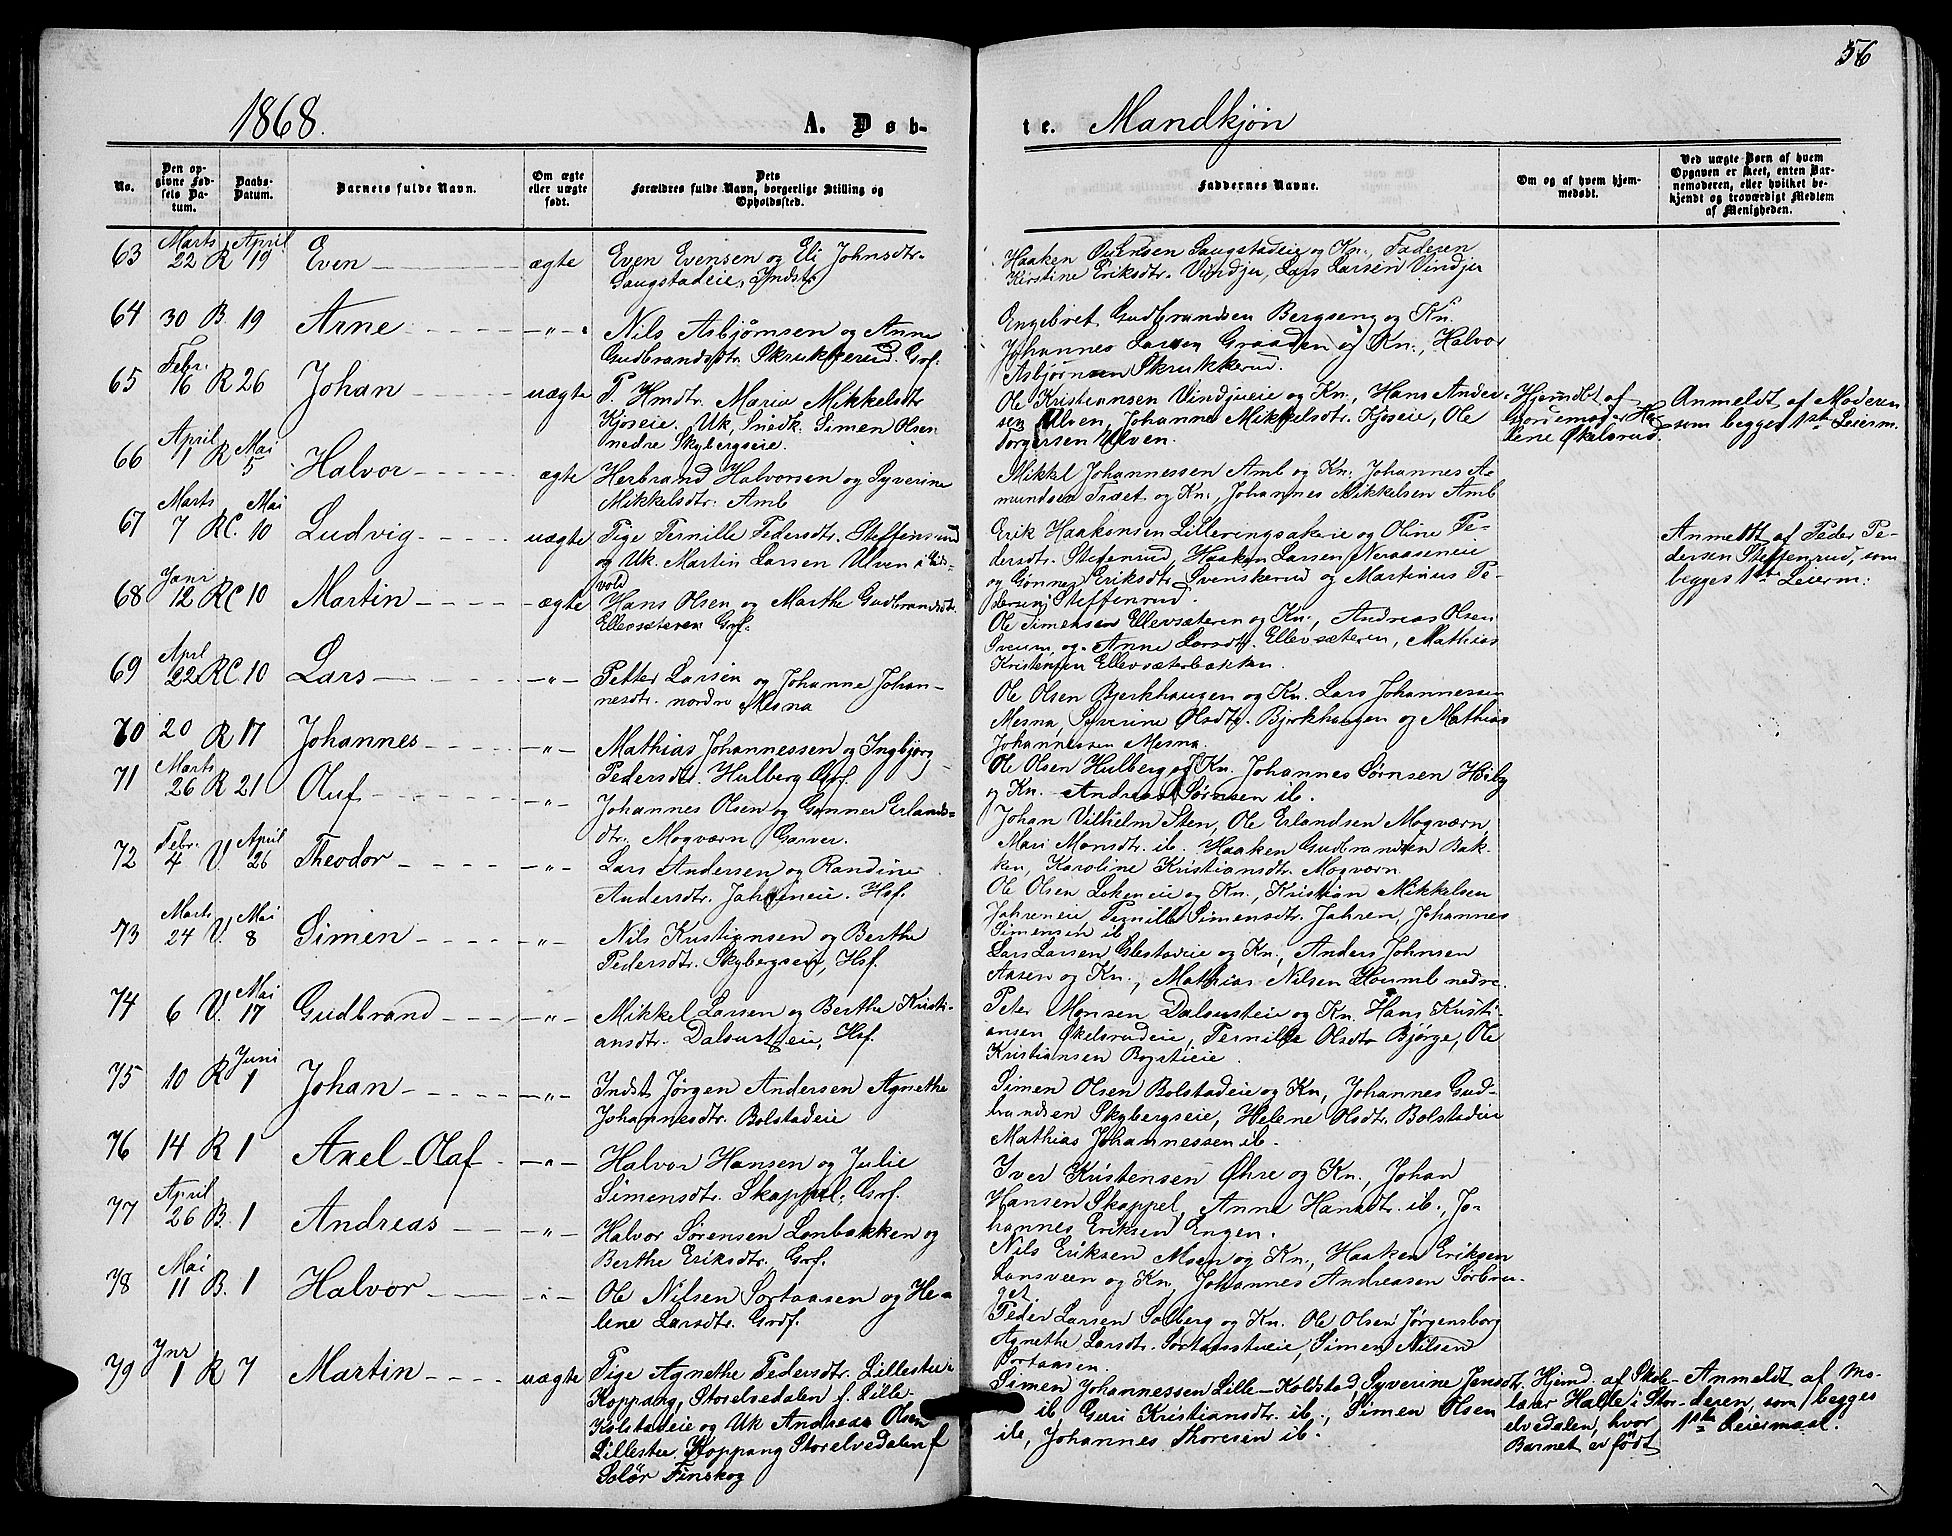 56
1868. A. Døb-
te. Mandkjøn
No.
Den op-
givne Fød-
sels Da-
tum.
Daabs-
Datum.
Barnets fulde Navn.
Om ægte
eller uægte
født.
Dets
Forældres fulde Navn, borgerlige Stilling og
Opholdssted.
Faddernes Navne.
Om og af hvem hjem-
medøbt.
Ved uægte Børn af hvem
Opgaven er skeet, enten Bar-
nemoderen, eller hvilket be-
kjendt og troværdigt Medlem
af Menigheden.
63 Marts 22 R April 19 Even ægte
Even Evensen og Eli Johnsdtr.
Saugstadeie, Indst.
Haaken Saugstadeie og Kn., Faderen
Kirstine Eriksdtr. Vindju, Lars Larsen Vindju
64 30 B. 19 Arne -"-
Nils Asbjørnsen og Anne
Gudbrandsdtr. Skrukkerud. Grf.
Engebret Gudbrandsen Bergseng og Kn.
Johannes Larsen Graaden og Kn., Halvor
Asbjørnsen Skrukkerud.
65 Febr. 16 R 26 Johan uægte
P. Hmdtr. Maria Mikkelsdtr
Kjoseie. Uk, Snedk. Simen Olsen
nedre Skybergseie.
Ole Kristiansen Vindjueie og Kn., Hans Ander-
sen Ulven, Johanne Mikkelsdtr. Kjoseie, Ole
Torgersen Ulven.
Hjemdbt af
Jordemoder He-
lene Økelsrud.
Anmeldt af Moderen
som begges 1ste Leierm.
66 April 1 R Mai 5 Halvor ægte
Herbrand Halvorsen og Syverine
Mikkelsdtr. Amb
Mikkel Johannessen Amb og Kn., Johannes A-
mundsen Træet og Kn., Johannes Mikkelsen Amb
67 Marts 7 RC. Mai 10 Ludvig uægte
Pige Pernille Pedersdtr. Steffensrud
og Uk. Martin Larsen Ulven i Eids-
vold
Erik Haakensen Lilleringsakereie og Oline Pe-
dersdtr. Steffenrud, Haaken Larsen Neraaseneie
og Gønner Eriksdtr. Svenskerud og Martinius Pe-
dersen Steffenrud.
Anmeldt af Peder Pe-
dersen Steffenrud, som
begges 1ste Leierm:
68 Janr 12 RC 10 Martin ægte
Hans Olsen og Marthe Gudbrandsdtr.
Ellevsæteren Grf.
Ole Simensen Ellevsæteren og Kn., Andreas Olsen
Sveum, og Anne Larsdtr. Ellevsæteren, Mathias
Kristensen Ellevsæterbakken.
69 Aprl 22 RC 10 Lars -"-
Petter Larsen og Johanne Johan-
nesdtr. nordre Mesna
Ole Olsen Bjerkhaugen og Kn. Lars Johannessen
Mesna, Syverine Olsdtr. Bjerkhaugen og Mathias
Johannessen Mesna.
70 20 R 17 Johannes -"-
Mathias Johannessen og Ingbjørg
Pedersdtr. Hulberg Grf.
Ole Olsen Hulberg og Kn. Johannes Sørnsen
og Kn. Andreas Sørnsen ib.
71 Marts 26 R 21 Oluf -"-
Johannes Olsen og Gønner Erlands-
dtr. Mogværn Garver.
Johan Vilhelm Sten, Ole Erlandsen Mogværn,
Mari Monsdtr. ib. Haaken Gudbrandsen Bak-
ken, Karoline Kristiansdtr. Mogværn
72 Febr. 4 V. April 26 Theodor -"-
Lars Andersen og Randine
Andersdtr. Jahreneie. Hsf.
Ole Olsen Lekeneie og Kn., Kristian Mikkelsen
Jahreneie, Pernille Simensdtr. Jahren, Johannes
Simensen ib
73 Marts 24 V. Mai 8 Simen -"-
Nils Kristiansen og Berthe
Pedersdtr. Skybergseie, Hsf.
Lars Larsen Glestadeie og Kn., Anders Johnsen
Aasen og Kn., Mathias Nilsen Houmb nedre.
74 6 V. Mai 17 Gudbrand -"-
Mikkel Larsen og Berthe Kristi-
ansdtr. Dalsusteie, Hsf.
Peter Monsen Dalsusteie og Kn. Hans Kristi-
ansen Økelsrudeie, Pernille Olsdtr Bjørge, Ole
Kristiansen
75 10 R Juni 1 Johan -"-
Indst Jørgen Andersen Agnethe
Johannesdtr. Bolstadeie
Simen Olsen Bolstadeie og Kn, Johannes Gud-
brandsen Skybergseie, Helene Olsdtr. Bolstadeie
Mathias Johannessen ib.
76 14 R 1 Axel Olaf -"-
Halvor Hansen og Julie
Simensdtr. Skappel, Grf.
Iver Kristensen Øhre og Kn., Johan
Hansen Skappel, Anne Hansdtr. ib., Jo-
hannes Eriksen Engen.
77 April 26 B. 1 Andreas -"-
Halvor Sørensen Lønbakken og
Berthe Eriksdtr. Grf.
Nils Eriksen Moen og Kn., Haaken Eriksen
Lansveen og Kn., Johannes Andreasen Sørbru-
get.
78 Mai 11 B. 1 Halvor -"-
Ole Nilsen Sortaasen og He-
lene Larsdtr. Grdf.
Peder Larsen Solberg og Kn. Ole Olsen Jørgensborg
Agnethe Larsdtr. Sortaasstueie, Simen Nilsen
Sortaasen.
79 Jnr 1 R 7 Martin uægte
Pige Agnethe Pedersdtr. Lillestu i
Koppang, Storelvedalen f. Lille-
Kolstadeie og Uk Andreas Olsen
Lillestu Koppang Storelvedalen f
Solør Finskog
Simen Johannessen Lille-Kolstad, Syverine Jensdtr.
ib, Guri Kristiansdtr. ib., Simen Olsen
ib, Johannes Thoresen ib.
Hjemd. af Skole-
lærer Halde i Stor-
elvedalen, hvor
Barnet er født
Anmeldt af Mo-
deren, som begges
1ste Leiermaal.